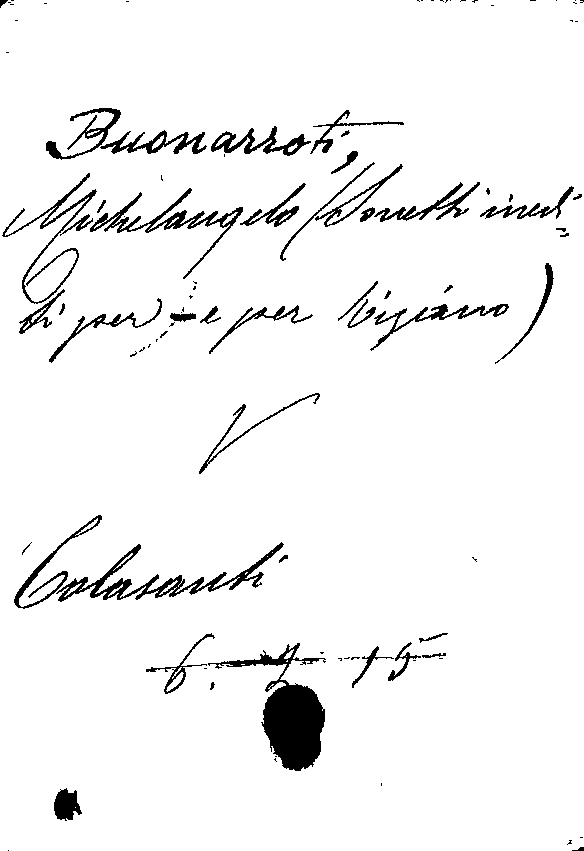 Buonarroti,
Michelangelo (Sonetti inedi-
ti per - e per Tiziano)
V
Colasanti
6. 2 15